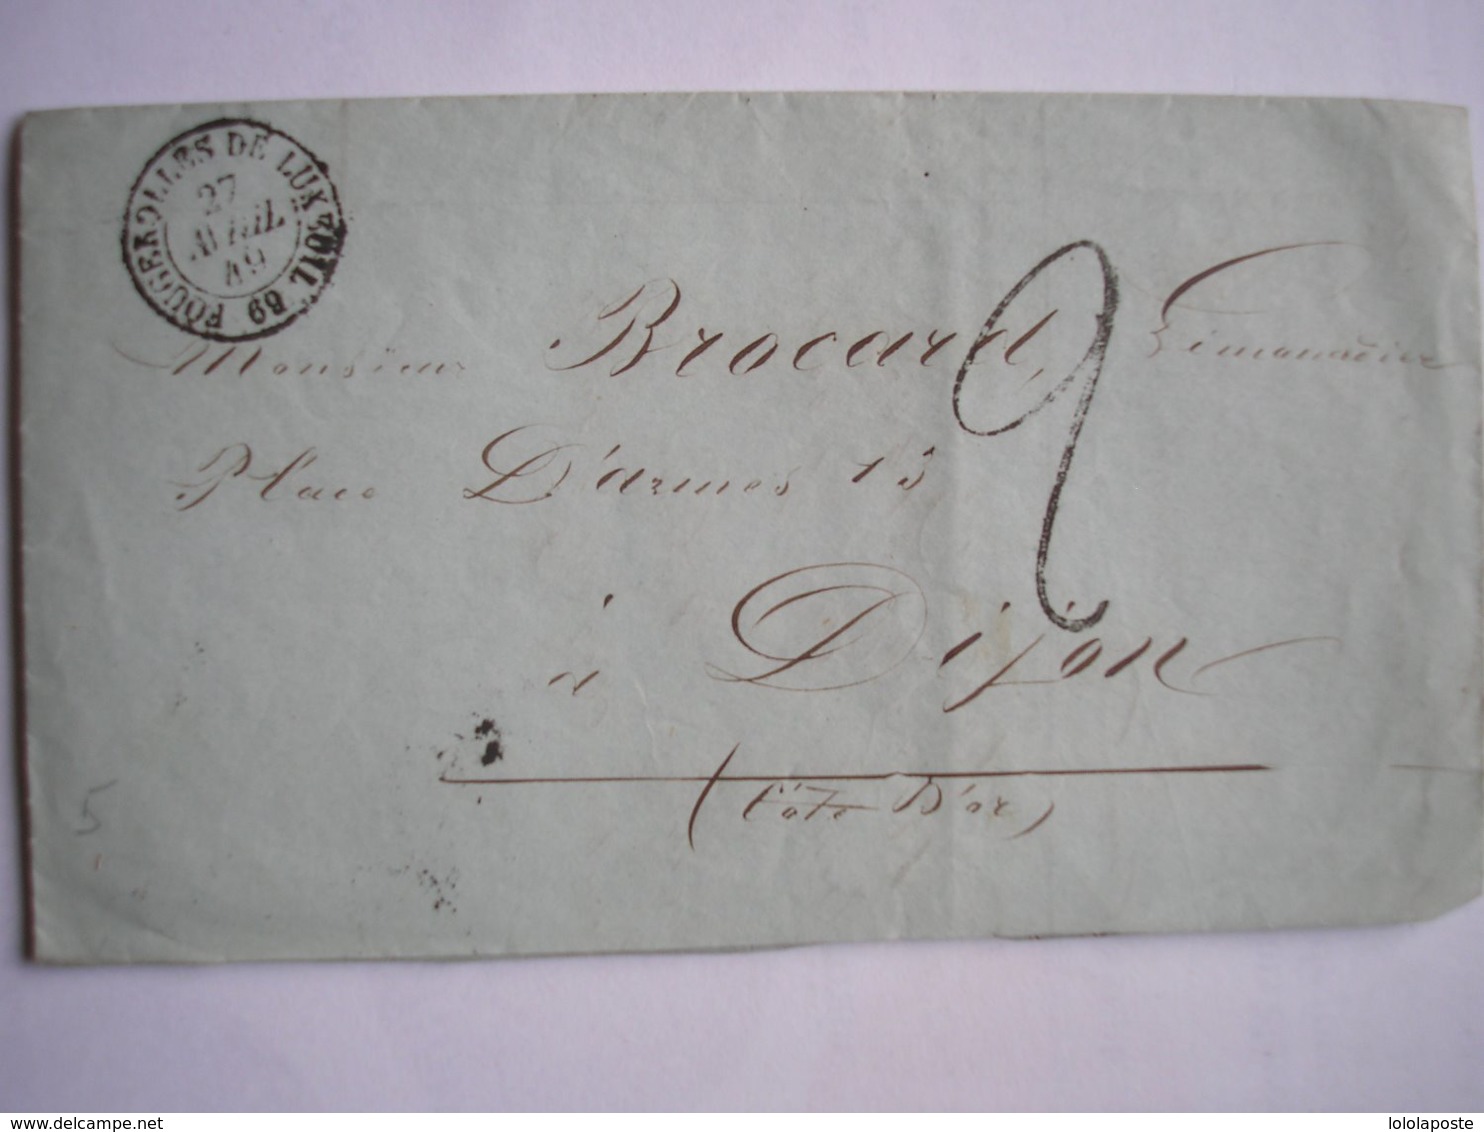 FOUGEROLLES DE LUXEUIL 69
27
AVRIL
49
2
Monsieur Brocard, Limonadier
Place D'armes 13
à Dijon
(Côte D'or)
5
lololaposte